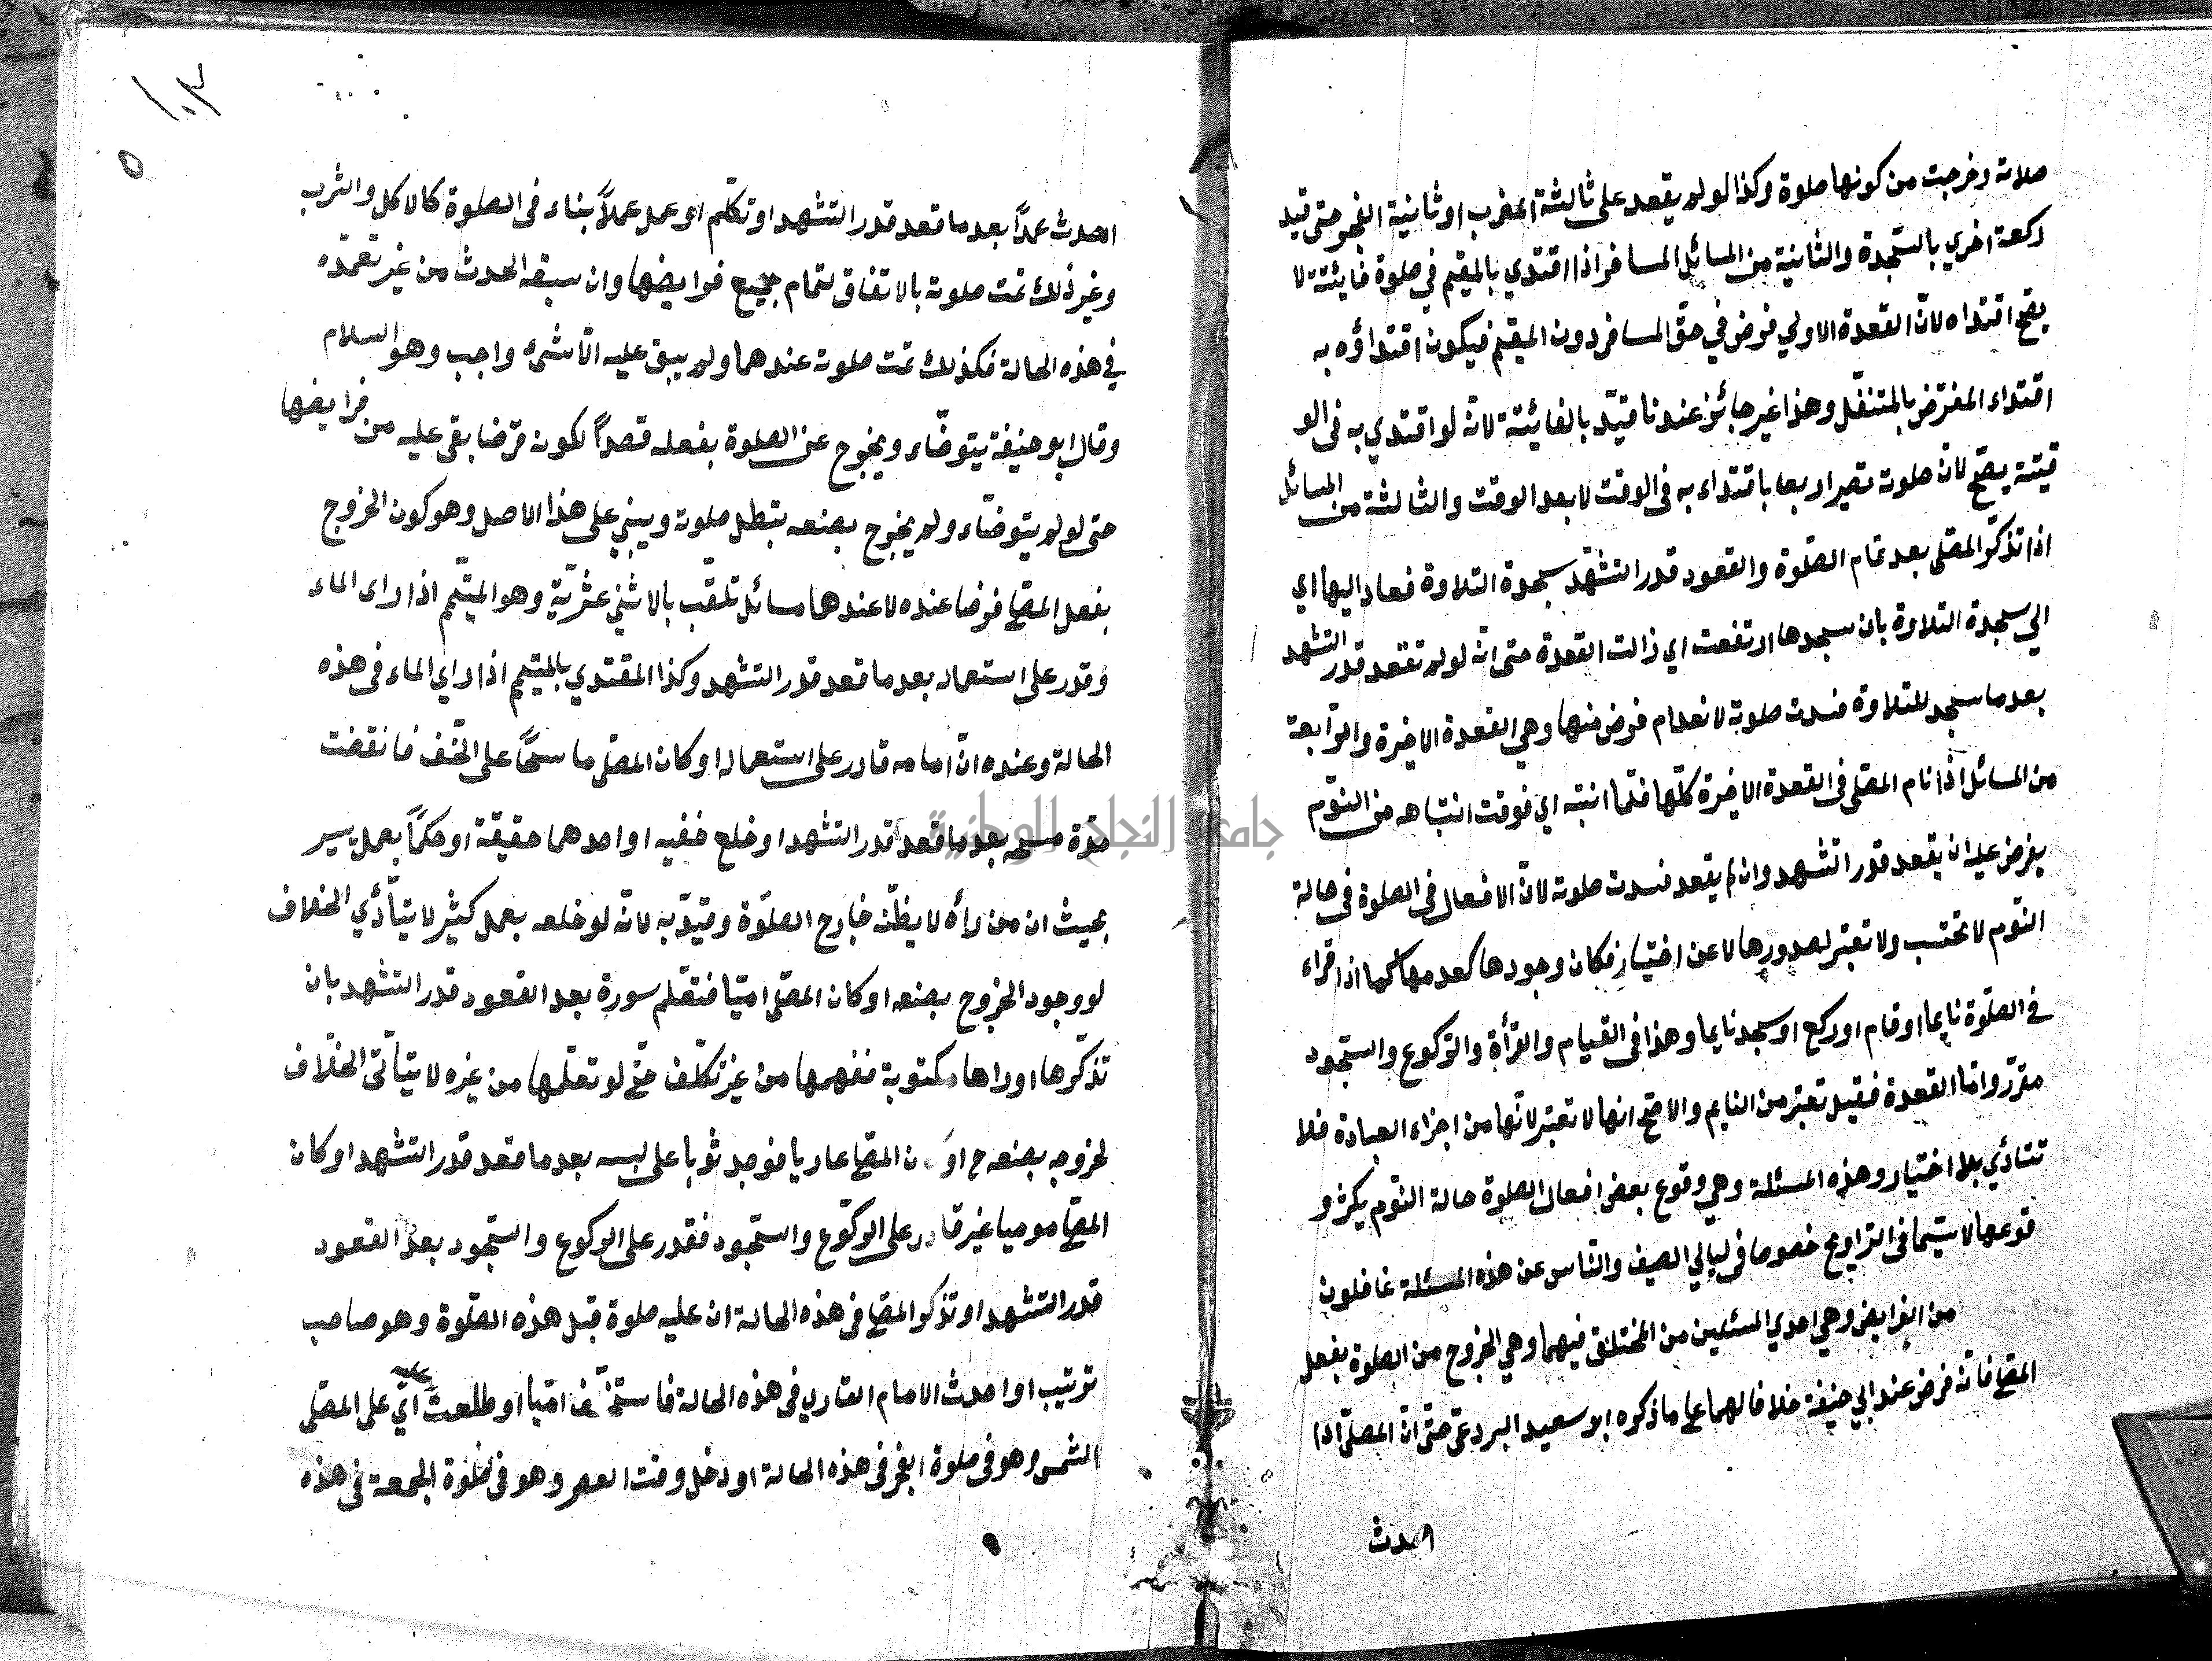 صلاته وخرجت من كونها صلوة وكذا لو لم يقعد على ثالثة المغرب او ثانية الفجر حتى قيد
ركعة اخري بالسّجدة والثانية من المسائل المسافر اذا اقتدي بالمقيم في صلوة فايئتة لا
يصحّ اقتداه لانّ القعدة الاولي فرض في حقّ المسافر دون المقيم فيكون اقتداؤه به
اقتداء المفترض بالمتنفّل وهذا غير جائز عندنا قيّد بالفايئتة لانّه لو اقتدي به فى الو
قيتة يصحّ لانّ صلوته تصير اربعا باقتداءبه فى الوقت لا بعد الوقت والثالثة من المسائل
اذا تذكّر المصّلى بعد تمام الصّلوة والقعود قدر التشهّد سجدة التلاوة فعاد اليها اي
الي سجدة التلاوة بان سجدها ارتفعت اي زالت القعدة حتى انّه لو لم تقعد قدر التشهد
بعد ما سجد للتلاوة فسدت صلوته لانعدام فرض منها وهي القعدة الاخيرة والرّابعة
من المسائل اذا نام المصّلى فى القعدة الاخيرة كلّها فلمّا انتبه اي فوقت انتباهه من النّوم
يفرض عليه ان يقعد قدر التشهد وان لم يقعد فسدت صلوته لانّ الافعال فى الصلوة فى حالة
النّوم لا تحتسب ولا تعتبر لصدورها لا عن اختيار فكان وجودها كعدمها كما اذا قراء
في الصّلوة نايما او قام او ركع او سجد نايما وهذا فى القيام والقرأة والرّكوع والسّجود
مقرّر وامّا القعدة فقيل تعتبر من النايم والاصّح انها لا تعتبر لانّها من اجزاء العبادة فلا
تتادّي بلا اختيار وهذه المسئلة وهي وقوع بعض افعال الصلوة حالة النّوم يكثر و
قوعها لا سيّما فى التراويح خصوصا فى ليالي الصيف والنّاس عن هذه المسئلة غافلون
من الفرايض وهي احدي المسئلتين من المختلف فيهما وهي الخروج من الصلوة بفعل
المصّلي فانّه فرض عند ابي حنيفة خلافا لهما على ما ذكره ابو سعيد البردعىّ حتّى انّ المصلّى اذا
احدث
١٠٣
٥
احدث عمدًا بعد ما قعد قدر التشهد او تكلّم او عمل عملًا ينافى الصلوة كالاكل والشرب
وغير ذلك تمت صلوته بالاتفاق لتمام جميع فرايضها وان سبقه الحدث من غير تعمّده
في هذه الحالة فكذلك تمت صلوته عندهما ولم يبق عليه الّا شيء واجب وهو السلام
وقال ابو حنيفة يتوضّاء ويخرج عن الصلوة بفعله قصدًا لكونه فرضا بقى عليه من فرايضها
حتى لو لم يتوضّاء ولم يخرج بصنعه بتطل صلوته ويبني على هذا الاصل وهو كون الخروج
بفعل المصّلي فرضا عنده لا عندهما مسائل تلقّب بالاثني عشريّة وهو المتيّمم اذا راى الماء
وقدر على استعماله بعد ما قعد قدر التشهد وكذا المقتدي بالمتيمم اذا راي الماء فى هذه
الحالة وعنده انّ امامه قادر على استعماله او كان المصّلى ماسحًا على الخّف فانقضت
مدّة مسحه بعد ما قعد قدر التشهد او خلع خفيه او احدهما حقيقة او حكمًا بعمل يسير
بحيث ان من راٰه لا يظنّه خارج الصلوة وقيّد به لانّه لو خلعه بعمل كثير لا يتأدّي الخلاف
لو وجود الخروج بصنعه او كان المصّلى اميّا فتعّلم سورة بعد القعود قدر التشهد بان
تذكّرها او راها مكتوبة ففهمها من غير تكلّف حتّى لو تعلّمها من غيره لا يتأتّى الخلاف
لخروجه بصنعه ح او كان المصّلي عاريا فوجد ثوبا على لبسه بعد ما قعد قدر التشهد او كان
المصّلي موميا غير قادر على الرّكوع والسّجود فقدر على الرّكوع والسّجود بعد القعود
قدر التشهد او تذكر المصّلي فى هذه الحالة ان عليه صلوة قبل هذه الصّلوة وهو صاحب
ترتيب او احدث الامام القاري فى هذه الحالة فاستخّلف اميّا او طلعت اي على المصّلى
عليه
الشمس وهو فى صلوة الفجر فى هذه الحالة او دخل وقت العصر وهو فى صلوة الجمعة فى هذه
جامعة النجاح الوطنية